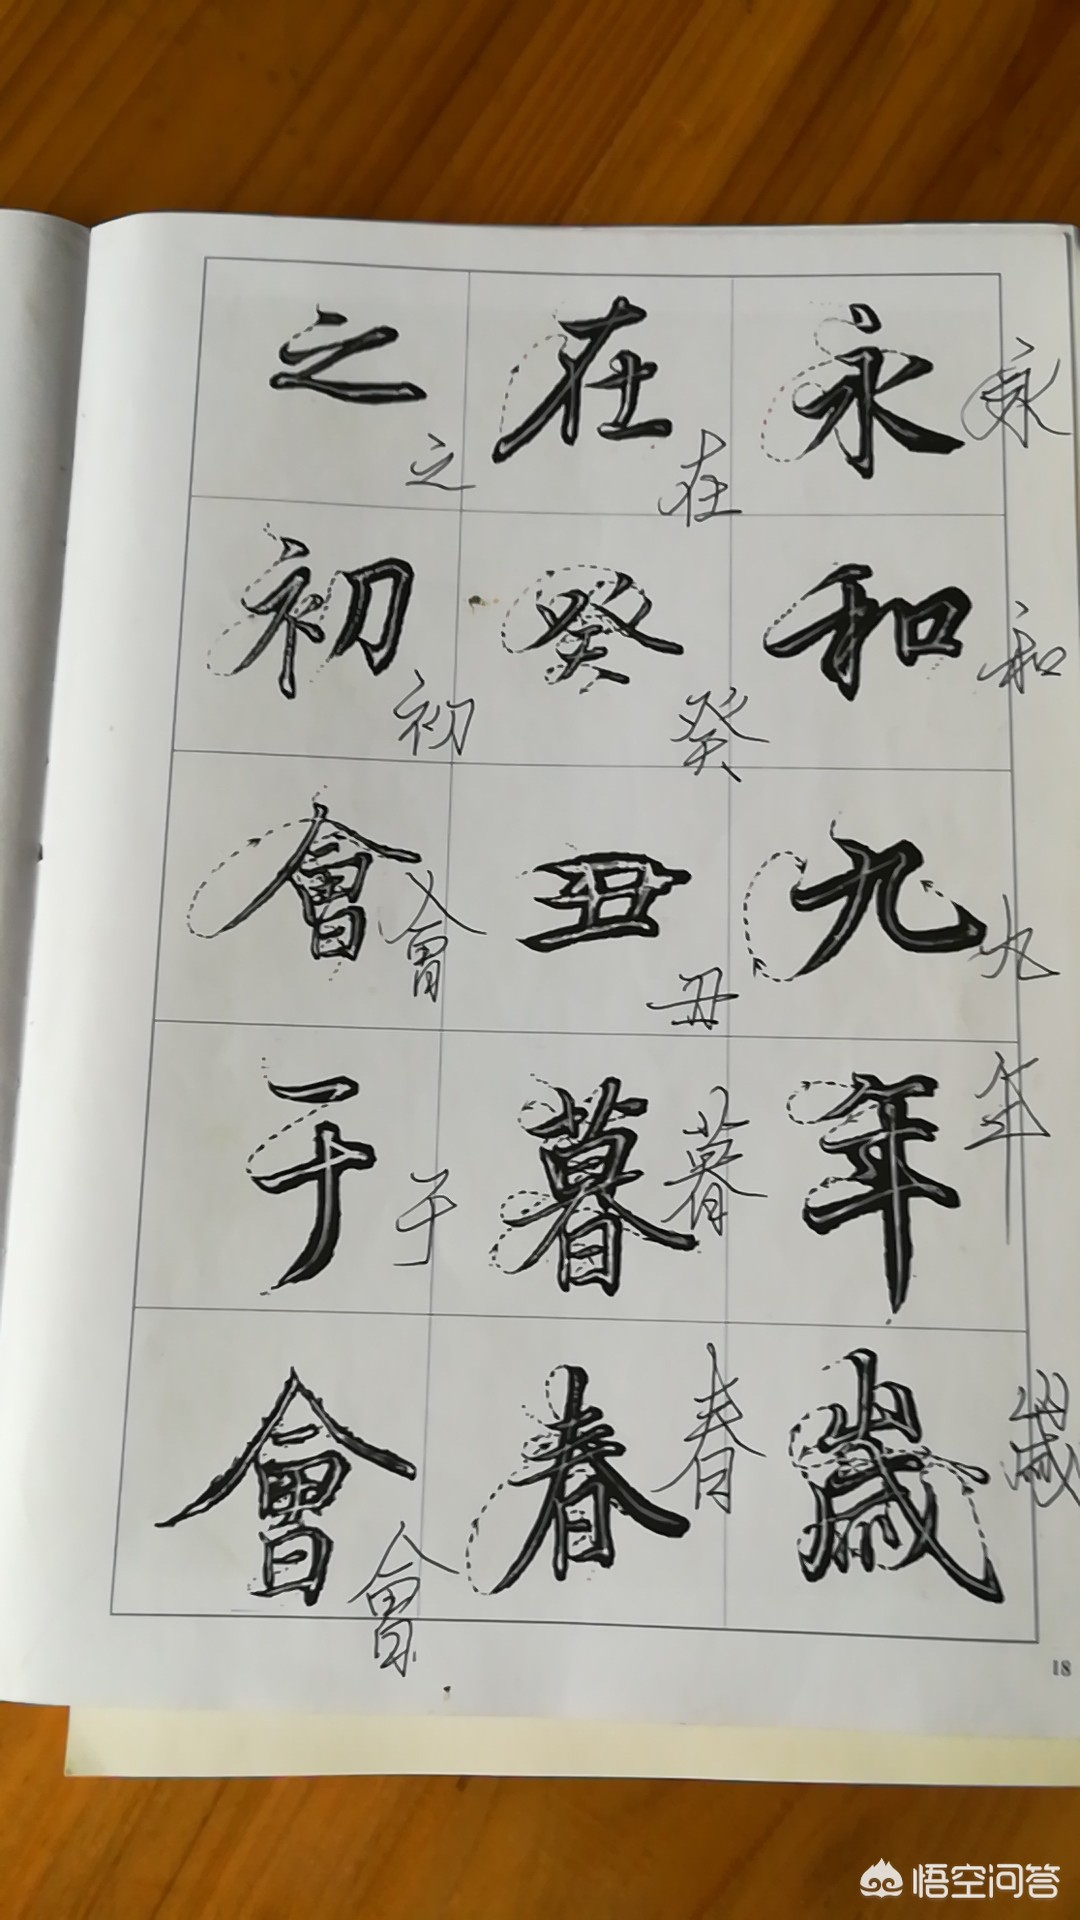 永和九年歲
在癸丑暮春
之初會于會
永
和
九
年
歲
在
癸
丑
暮
春
之
初
會
于
會
18
悟空问答